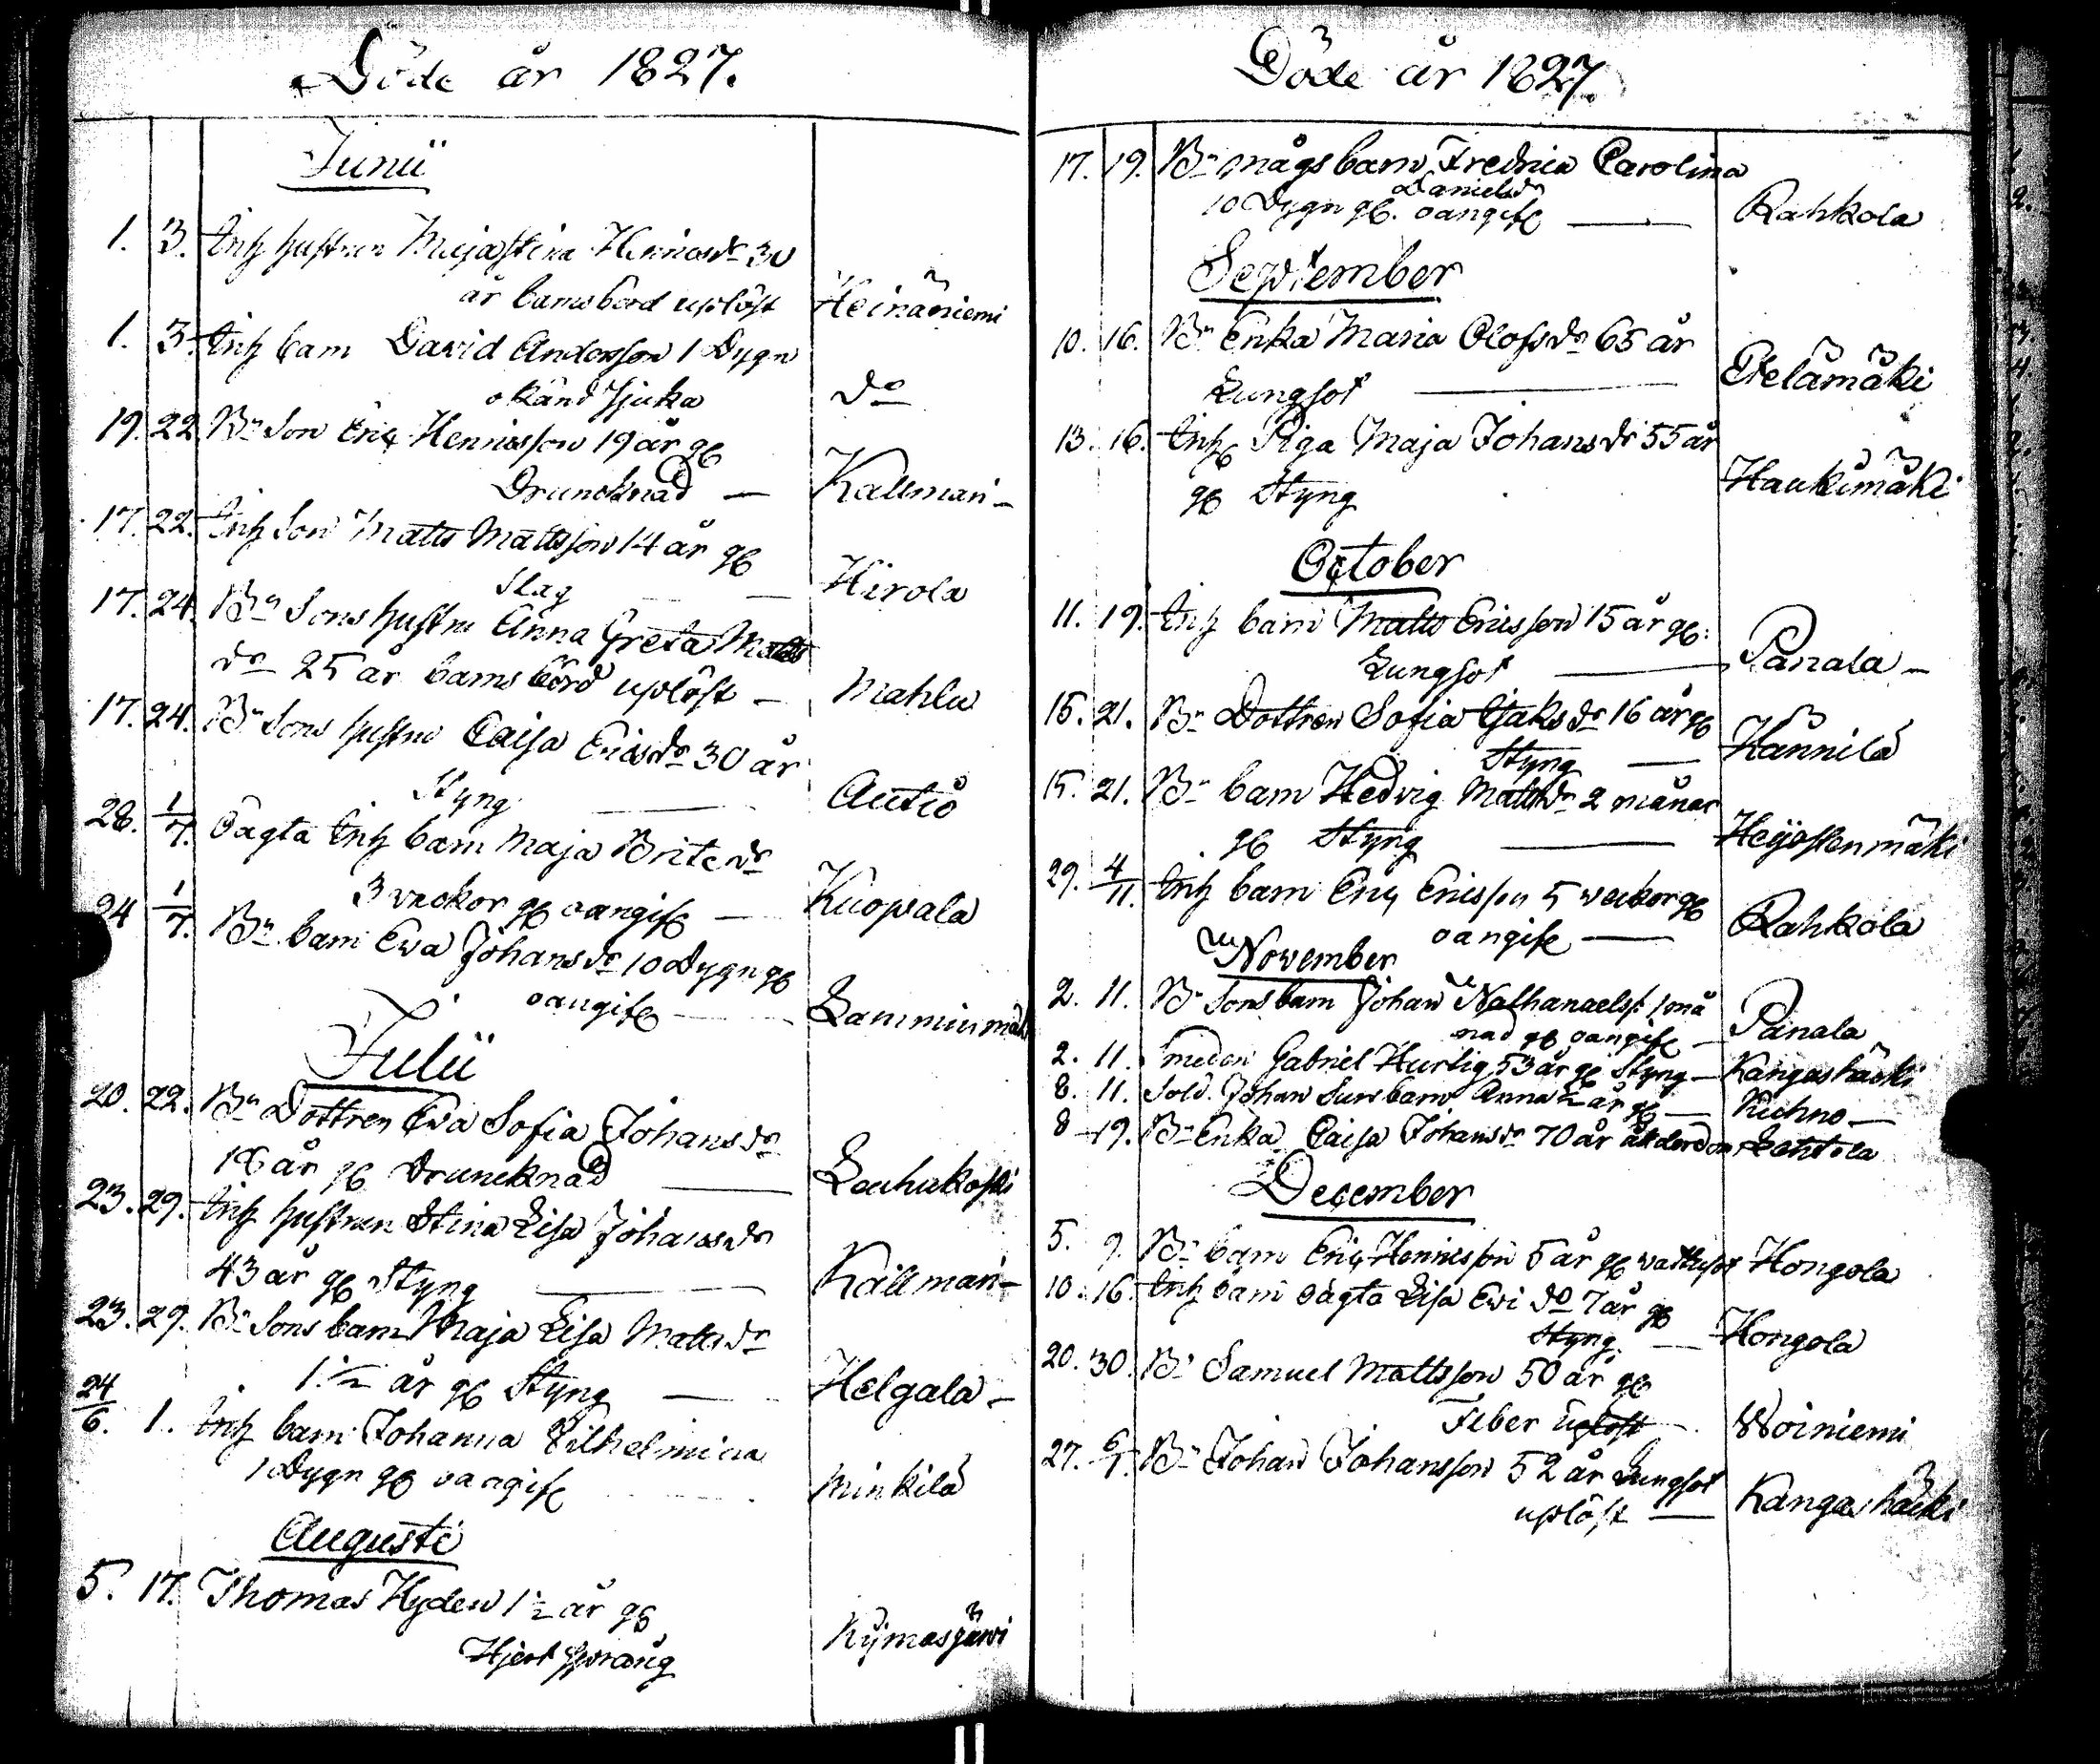 Döde år 1827.
Junii
1. 3. Inh hustrun Maja Stina Henricsdr 30
år barnsbörd uplöst Heinäniemi
1. 3. Inh barn David Andersson 1 Dygn
okänd sjuka do
19. 22. Bn Son Eric Henricsson 19 år gl
Druncknad — Kallmari —
17. 22. Inh Son Matts Mattsson 14 år gl
Slag — Hirola
17. 24. Bn Sons hustru Anna Greta Matts
dr 25 år barnsbörd uplöst — Mahlu
17. 24. Bn Sons hustru Caisa Ericsdr 30 år
Styng — Autio
28. 1/7. Oägta Inh barn Maja Brite dr
3 veckor gl oangife — Kuopala
24 1/7. Bn barn Ewa Johansdr 10 Dygn gl
oangife — Lamminmäki
Julii
20. 22. Bn Dottren Ewa Sofia Johansdr
18 år gl Druncknad — Leuhukoski
23. 29. Inh hustrun Stina Lisa Johansdr
43 år gl Styng — Kallmari —
23. 29. Bn Sons barn Maja Lisa Mattsdr
1 1/2 år gl Styng — Helgala —
24/6. 1. Inh barn Johanna Vilhelmina
1 Dygn gl oangife Minkilä
Augusti
5. 17. Thomas Hyden 1 1/2 år gl
Hjertsprång Kijmasjärwi
Döde år 1827.
17. 19. Bn mågs barn Fredrica Carolina
Danielsdr
10 Dygn gl. oangife — Rahkola
September
10. 16. Bn Enka Maria Olofsdr 65 år
Lungsot — Etelämäki
13. 16. Inh Piga Maja Johansdr 55 år
gl Styng Haukimäki
October
11. 19. Inh barn Matts Ericsson 15 år gl.
Lungsot — Panala —
15. 21. Bn Dottren Sofia Isaksdr 16 år gl
Styng — Hännilä
15. 21. Bn barn Hedvig Mattsdr 2 månar
gl Styng — Heijostenmäki
29. 4/11. Inh barn Eric Ericsson 5 veckor gl
oangife — Rahkola
November
2. 11. Bn Sons barn Johan Nathanaels: 1 må
nad gl oangife — Panala
2. 11. Smeden Gabriel Hurtig 53 år gl Styng — Kangashäcki
8. 11. Sold. Johan Surs barn Anna 1/2 år gl — Kuhno —
8 19. Bn Enka Caisa Johansdr 70 år ålderdom Lahtola
December
5. 9. Bn barn Eric Henricsson 5 år gl wattusot Hongola
10. 16. Inh barn oägta Lisa Ewi do 7 år gl
Styng — Hongola
20. 30. Bn Samuel Mattsson 50 år gl
Feber uplöst — Woiniemi
27. 6/1. Bn Johan Johansson 52 år Lungsot
uplöst — Kangashäcki